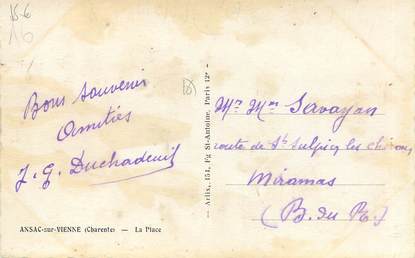 15-6
16
Bons souvenirs
Amitiés
J. G. Duchadeuil
ANSAC-sur-VIENNE (Charente) — La Place
Arlix, 154, Fg St-Antoine, Paris 12e
Mr Mme Savayan
route de St Sulpice les
Miramas
(B. du R.)